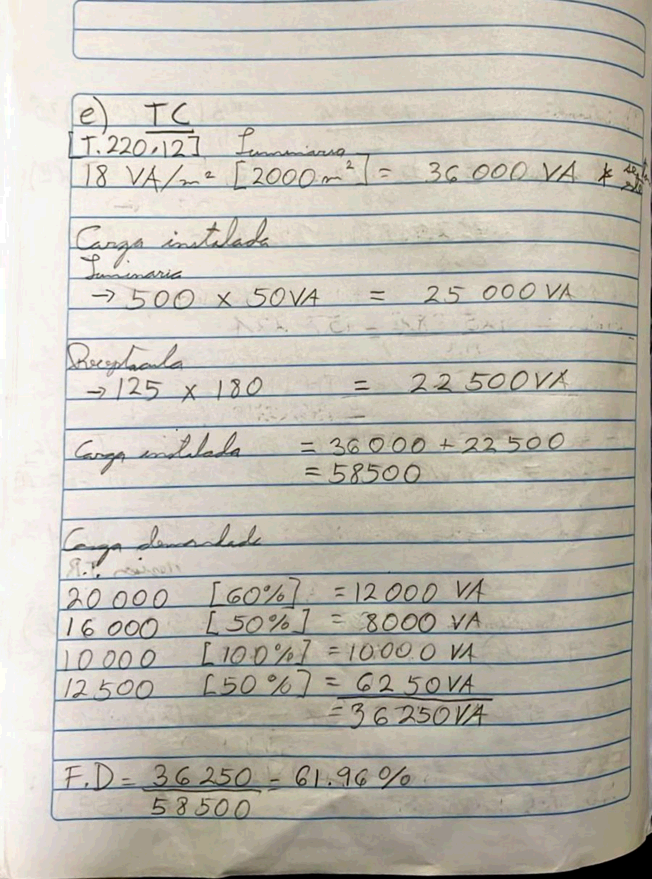 e) TC
[T.220.12] Luminaria
18 VA/m² [2000m²] = 36 000 VA *
Carga instalada
Luminaria
→ 500 x 50VA = 25 000 VA
Receptaculo
→ 125 x 180 = 22 500VA
Carga instalada = 36000 + 22500
= 58500
Carga demandada
20 000 [60%] = 12 000 VA
16 000 [50%] = 8000 VA
10 000 [100%] = 10000 VA
12 500 [50%] = 6250VA
= 36250VA
F.D = 36 250 = 61.96%
58500